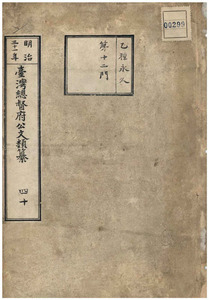 00299
乙種永久
第十二門
明治
三十一年
臺灣總督府公文類纂
四十